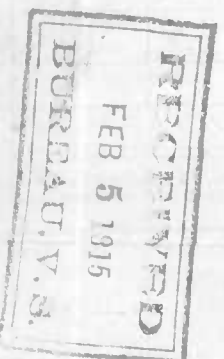 RECEIVED
FEB 5 1915
BUREAU. V. S.